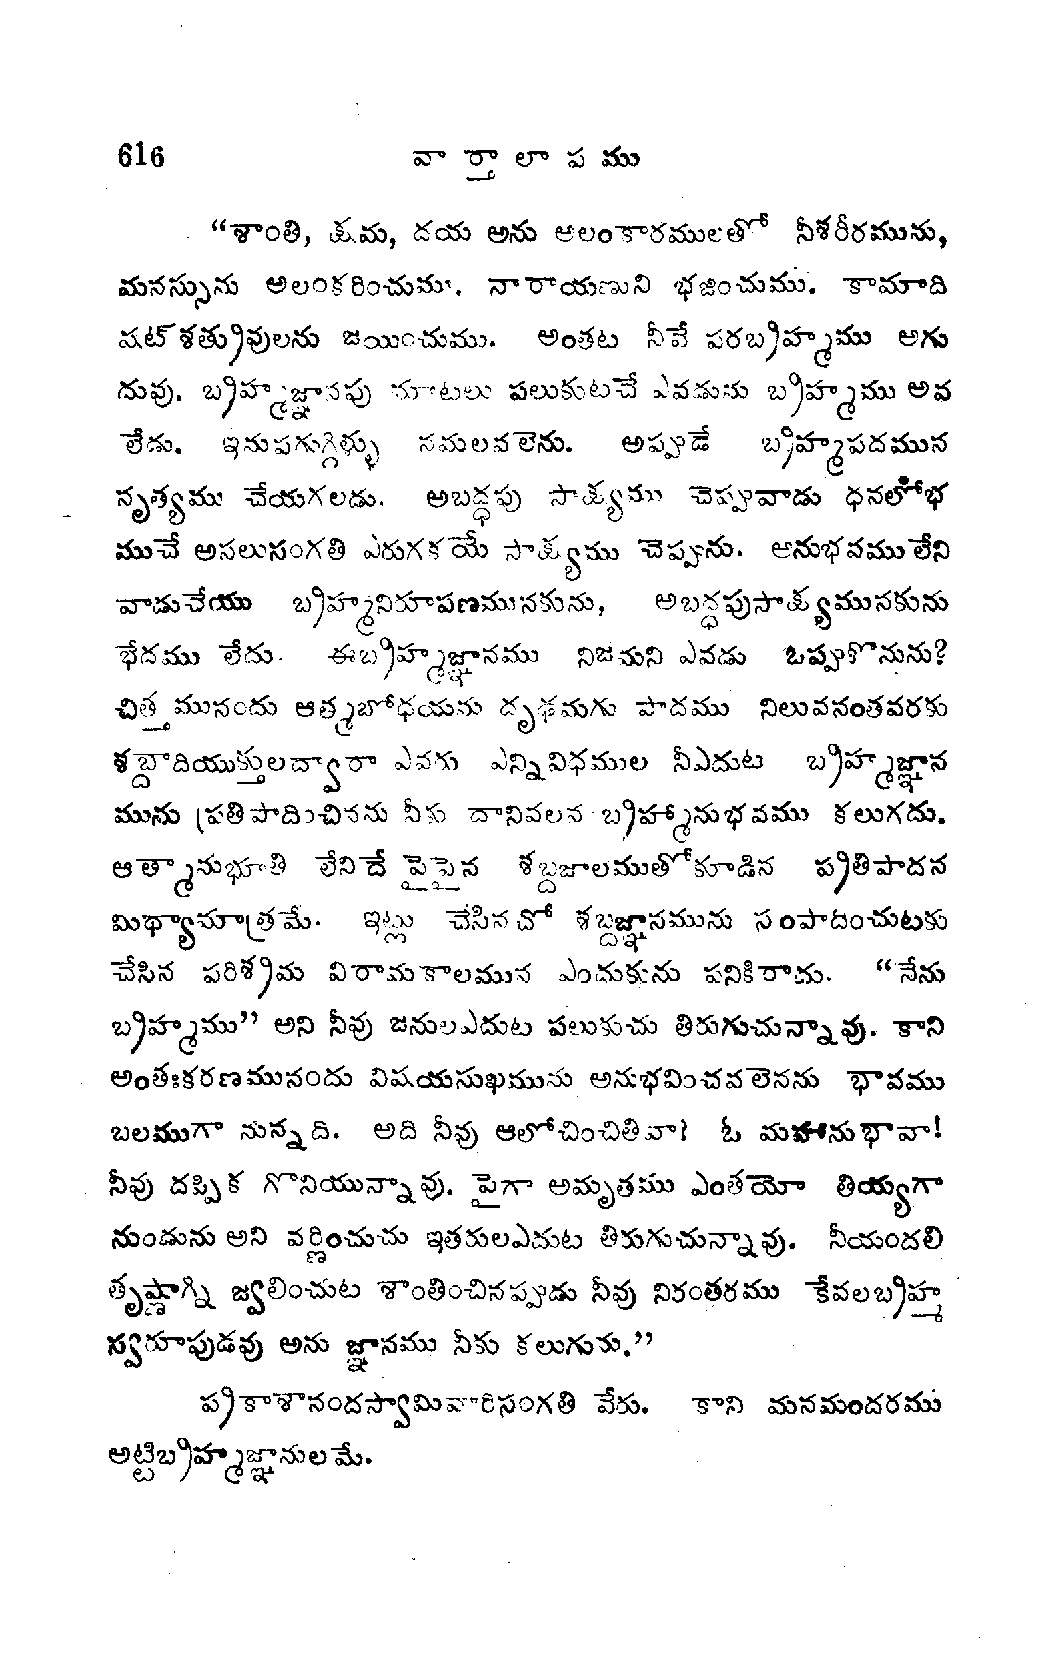 616 వార్తాలాపము
“శాంతి, క్షమ, దయ అను ఆలంకారములతో నీశరీరమును,
మనస్సును అలంకరించుము. నారాయణుని భజించుము. కామాది
షట్‌శత్రువులను జయించుము. అంతట నీవే పరబ్రహ్మము అగు
దువు. బ్రహ్మజ్ఞానపు మాటలు పలుకుటచే ఎవడును బ్రహ్మము అవ
లేడు. ఇనుపగుగ్గిళ్ళు నమలవలెను. అప్పుడే బ్రహ్మపదమున
నృత్యము చేయగలడు. అబద్ధపు సాక్ష్యము చెప్పువాడు ధనలోభ
ముచే అసలుసంగతి ఎరుగకయే సాక్ష్యము చెప్పును. అనుభవములేని
వాడుచేయు బ్రహ్మనిరూపణమునకును, అబద్ధపుసాక్ష్యమునకును
భేదము లేదు. ఈబ్రహ్మజ్ఞానము నిజమని ఎవడు ఒప్పుకొనును?
చిత్తమునందు ఆత్మబోధయను దృఢమగు పాదము నిలువనంతవరకు
శబ్దాదియుక్తులద్వారా ఎవరు ఎన్నివిధముల నీఎదుట బ్రహ్మజ్ఞాన
మును ప్రతిపాదించినను నీకు దానివలన బ్రహ్మానుభవము కలుగదు.
ఆత్మానుభూతి లేనిదే పైపైన శబ్దజాలముతోకూడిన ప్రతిపాదన
మిథ్యామాత్రమే. ఇట్లు చేసినచో శబ్దజ్ఞానమును సంపాదించుటకు
చేసిన పరిశ్రమ విరామకాలమున ఎందుకును పనికిరాదు. “నేను
బ్రహ్మము” అని నీవు జనులఎదుట పలుకుచు తిరుగుచున్నావు. కాని
అంతఃకరణమునందు విషయసుఖమును అనుభవించవలెనను భావము
బలముగా నున్నది. అది నీవు ఆలోచించితివా? ఓ మహానుభావా!
నీవు దప్పిక గొనియున్నావు. పైగా అమృతము ఎంతయో తియ్యగా
నుండును అని వర్ణించుచు ఇతరులఎదుట తిరుగుచున్నావు. నీయందలి
తృష్ణాగ్ని జ్వలించుట శాంతించినప్పుడు నీవు నిరంతరము కేవలబ్రహ్మ
స్వరూపుడవు అను జ్ఞానము నీకు కలుగును.”
ప్రకాశానందస్వామివారిసంగతి వేరు. కాని మనమందరము
అట్టిబ్రహ్మజ్ఞానులమే.